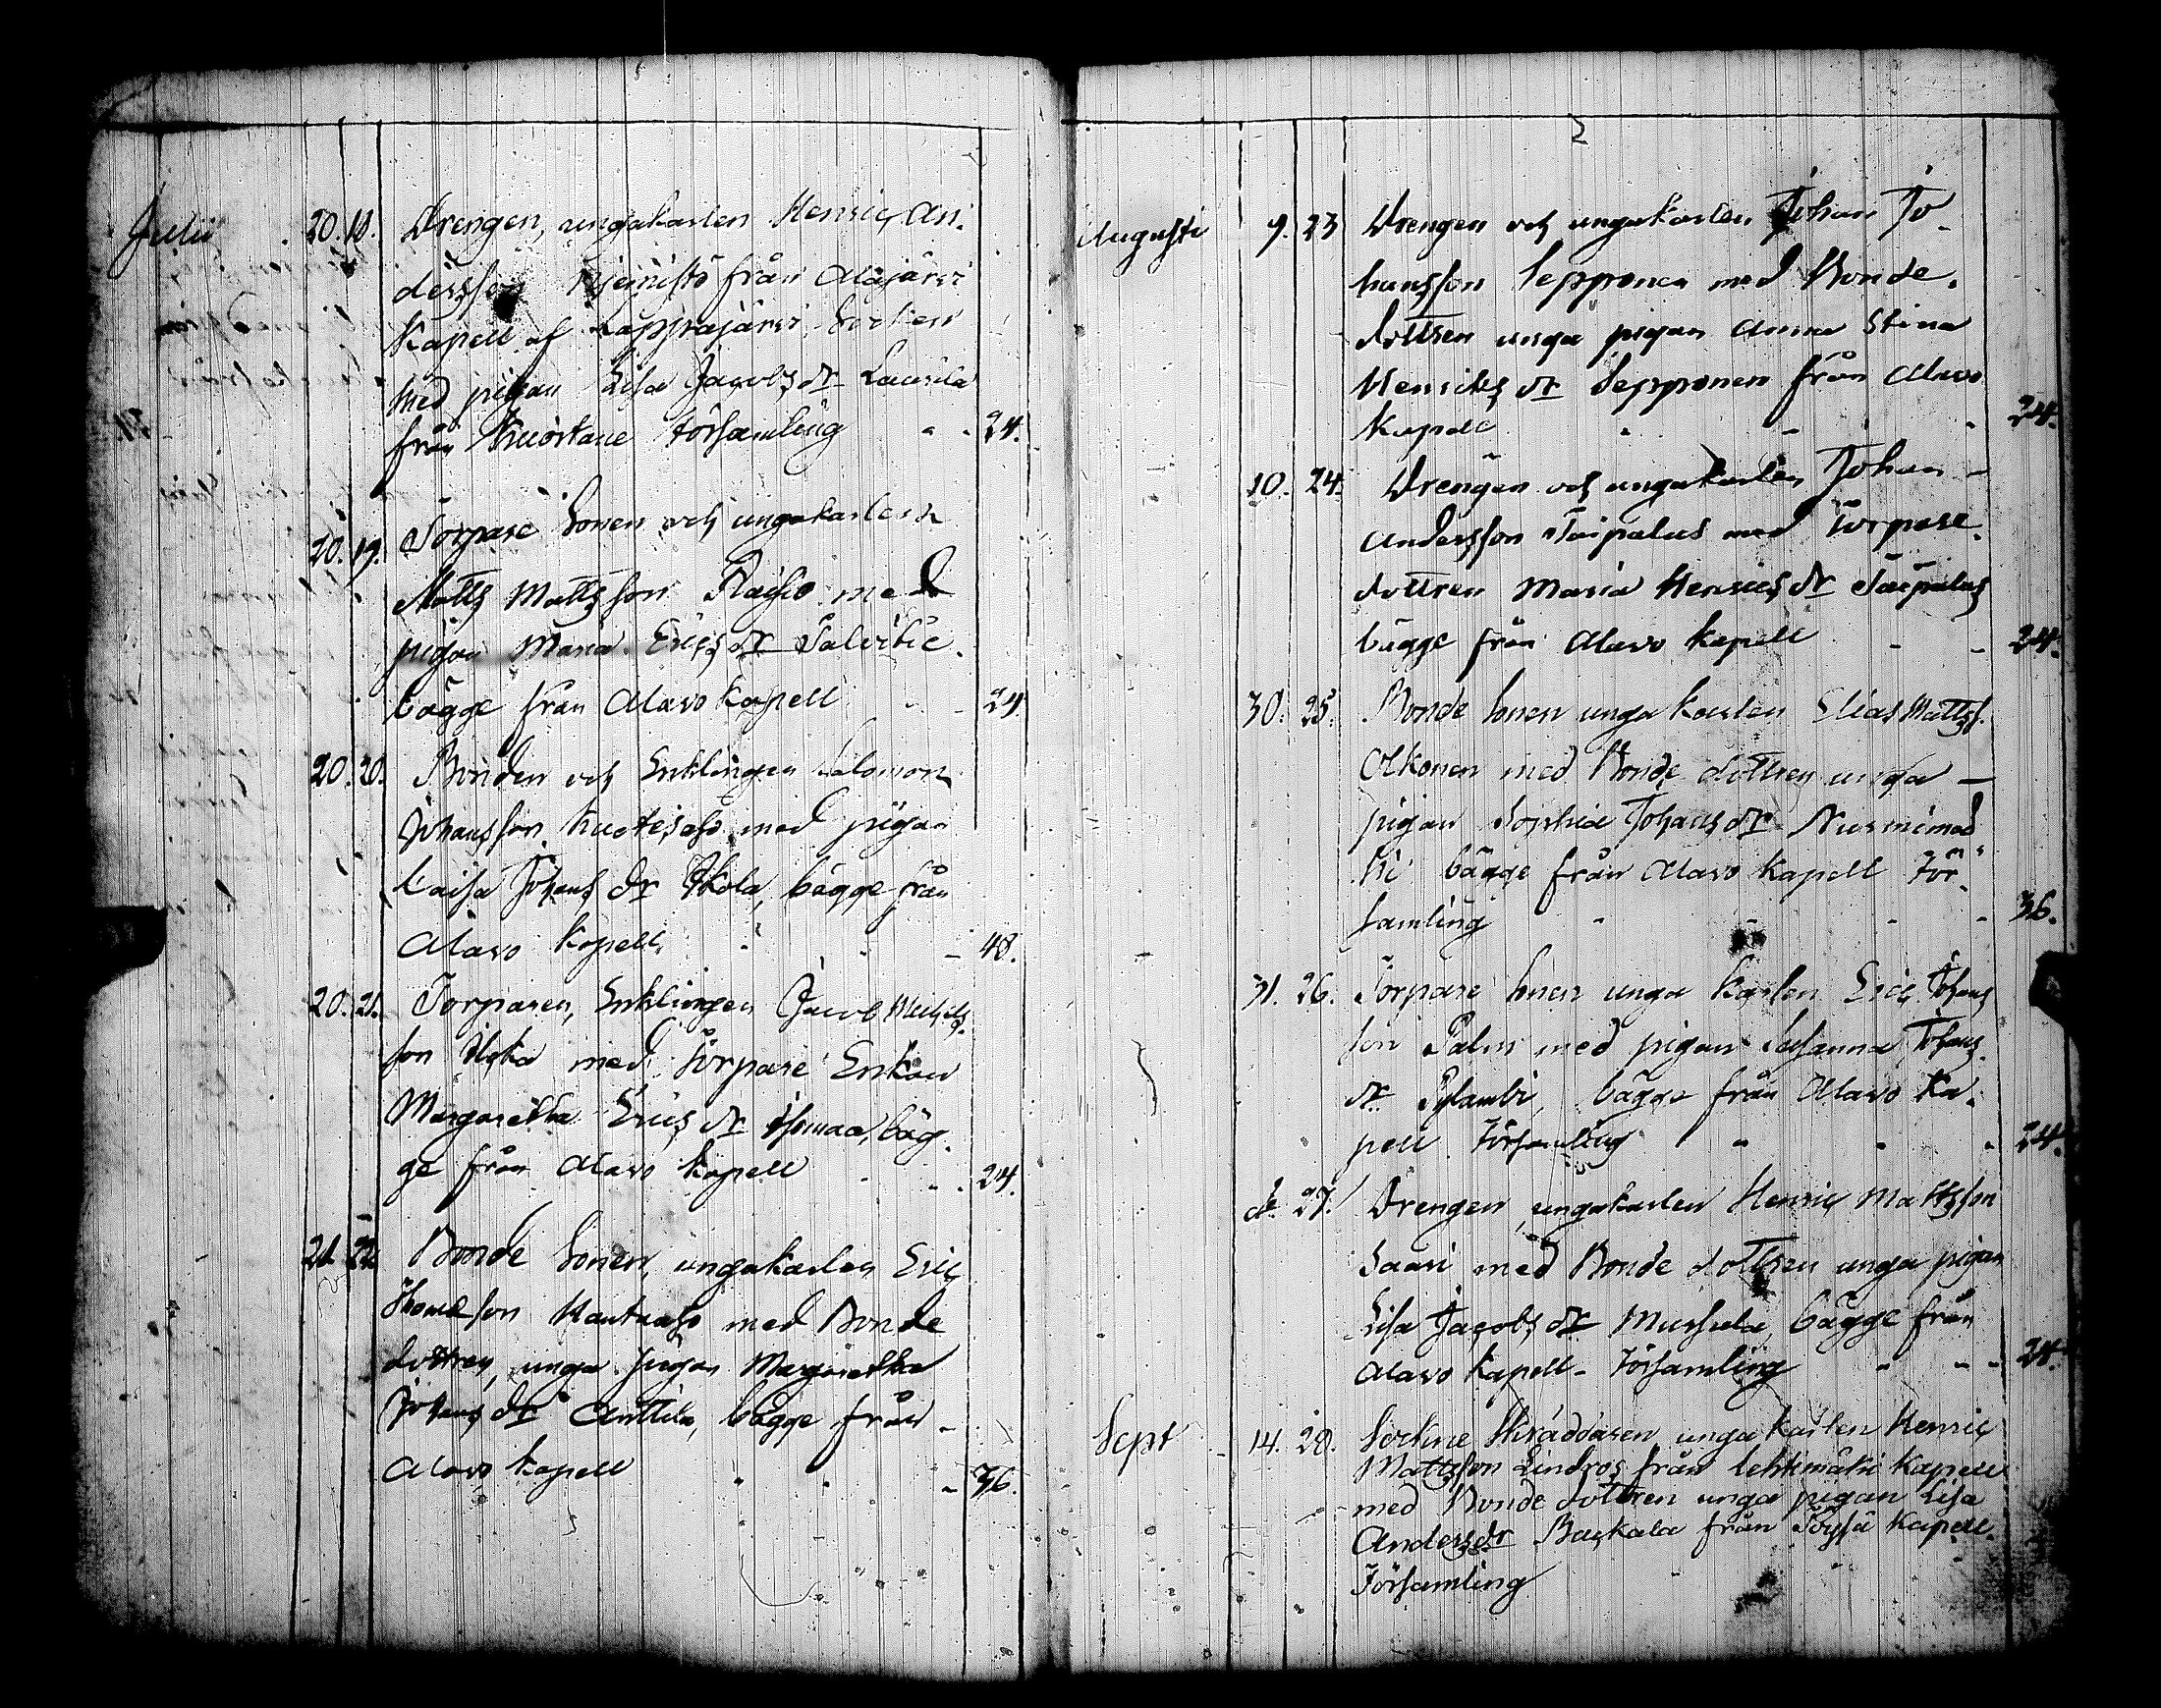 Julii 20. 18. Drengen, ungakarlen Henric An-
dersson Niemistö från Alajärvi
Kapell af Lappajärvi Socken
med pigan Lisa Jacobs dr Laurila
från Kuortane Församling - - 24.
20. 19. Torpare Sonen och ungakarlen
Matts Mattsson Raisio med
pigan Maria Erics dr Salvibic
bägge från Alavo Kapell - - 24.
20. 20. Bonden och Enklingen Salomon
Johansson Kuotesaho med pigan
Caisa Johans dr Skola, bägge från
Alavo Kapell - - - 48.
20. 21. Torparen, Enklingen Jacob Michels
son med Torpare Enkan
Margaretha Erics dr bäg-
ge från Alavo Kapell - - - 24.
21. 22. Bonde Sonen, ungakarlen Eric
Thomasson Hautaaho med Bonde
dottren, unga pigan Margaretha
Johans dr Anttila, bägge från -
Alavo Kapell - - - 36.
2
Augusti 9. 23 Drengen och ungakarlen Johan Jo-
hansson Sepponen med Bonde-
dottren unga pigan Anna Stina
Henrics dr Sepponen från Alavo
Kapell - - - 24.
10. 24. Drengen och ungakarlen Johan -
Andersson Taipalus med Torpare-
dottren Maria Henrics dr Taipalus
bägge från Alavo Kapell - - 24.
30. 25. Bonde Sonen unga karlen Elias Matts s.
Olkonen med Bonde dottren unga -
pigan Sophia Johans dr Nurmimäd
ki bägge från Alavo Kapell För-
samling - - - - 36.
31. 26. Torpare Sonen unga karlen Eric Johans
son Palm med pigan Susanna Johans
dr Sylambi, bägge från Alavo Ka-
pell Församling - - - 24.
de 27. Drengen, ungakarlen Henric Mattsson
Saari med Bonde dottren unga pigan
Lisa Jacobs dr bägge från
Alavo Kapell - Församling - - - 24.
Sept 14. 28. Sockne Skräddaren unga karlen Henric
Mattsson Lindros från Lehtimäki Kapell
med Bonde dottren unga pigan Lisa
Anders dr Backala från Töysä Kapell-
Församling